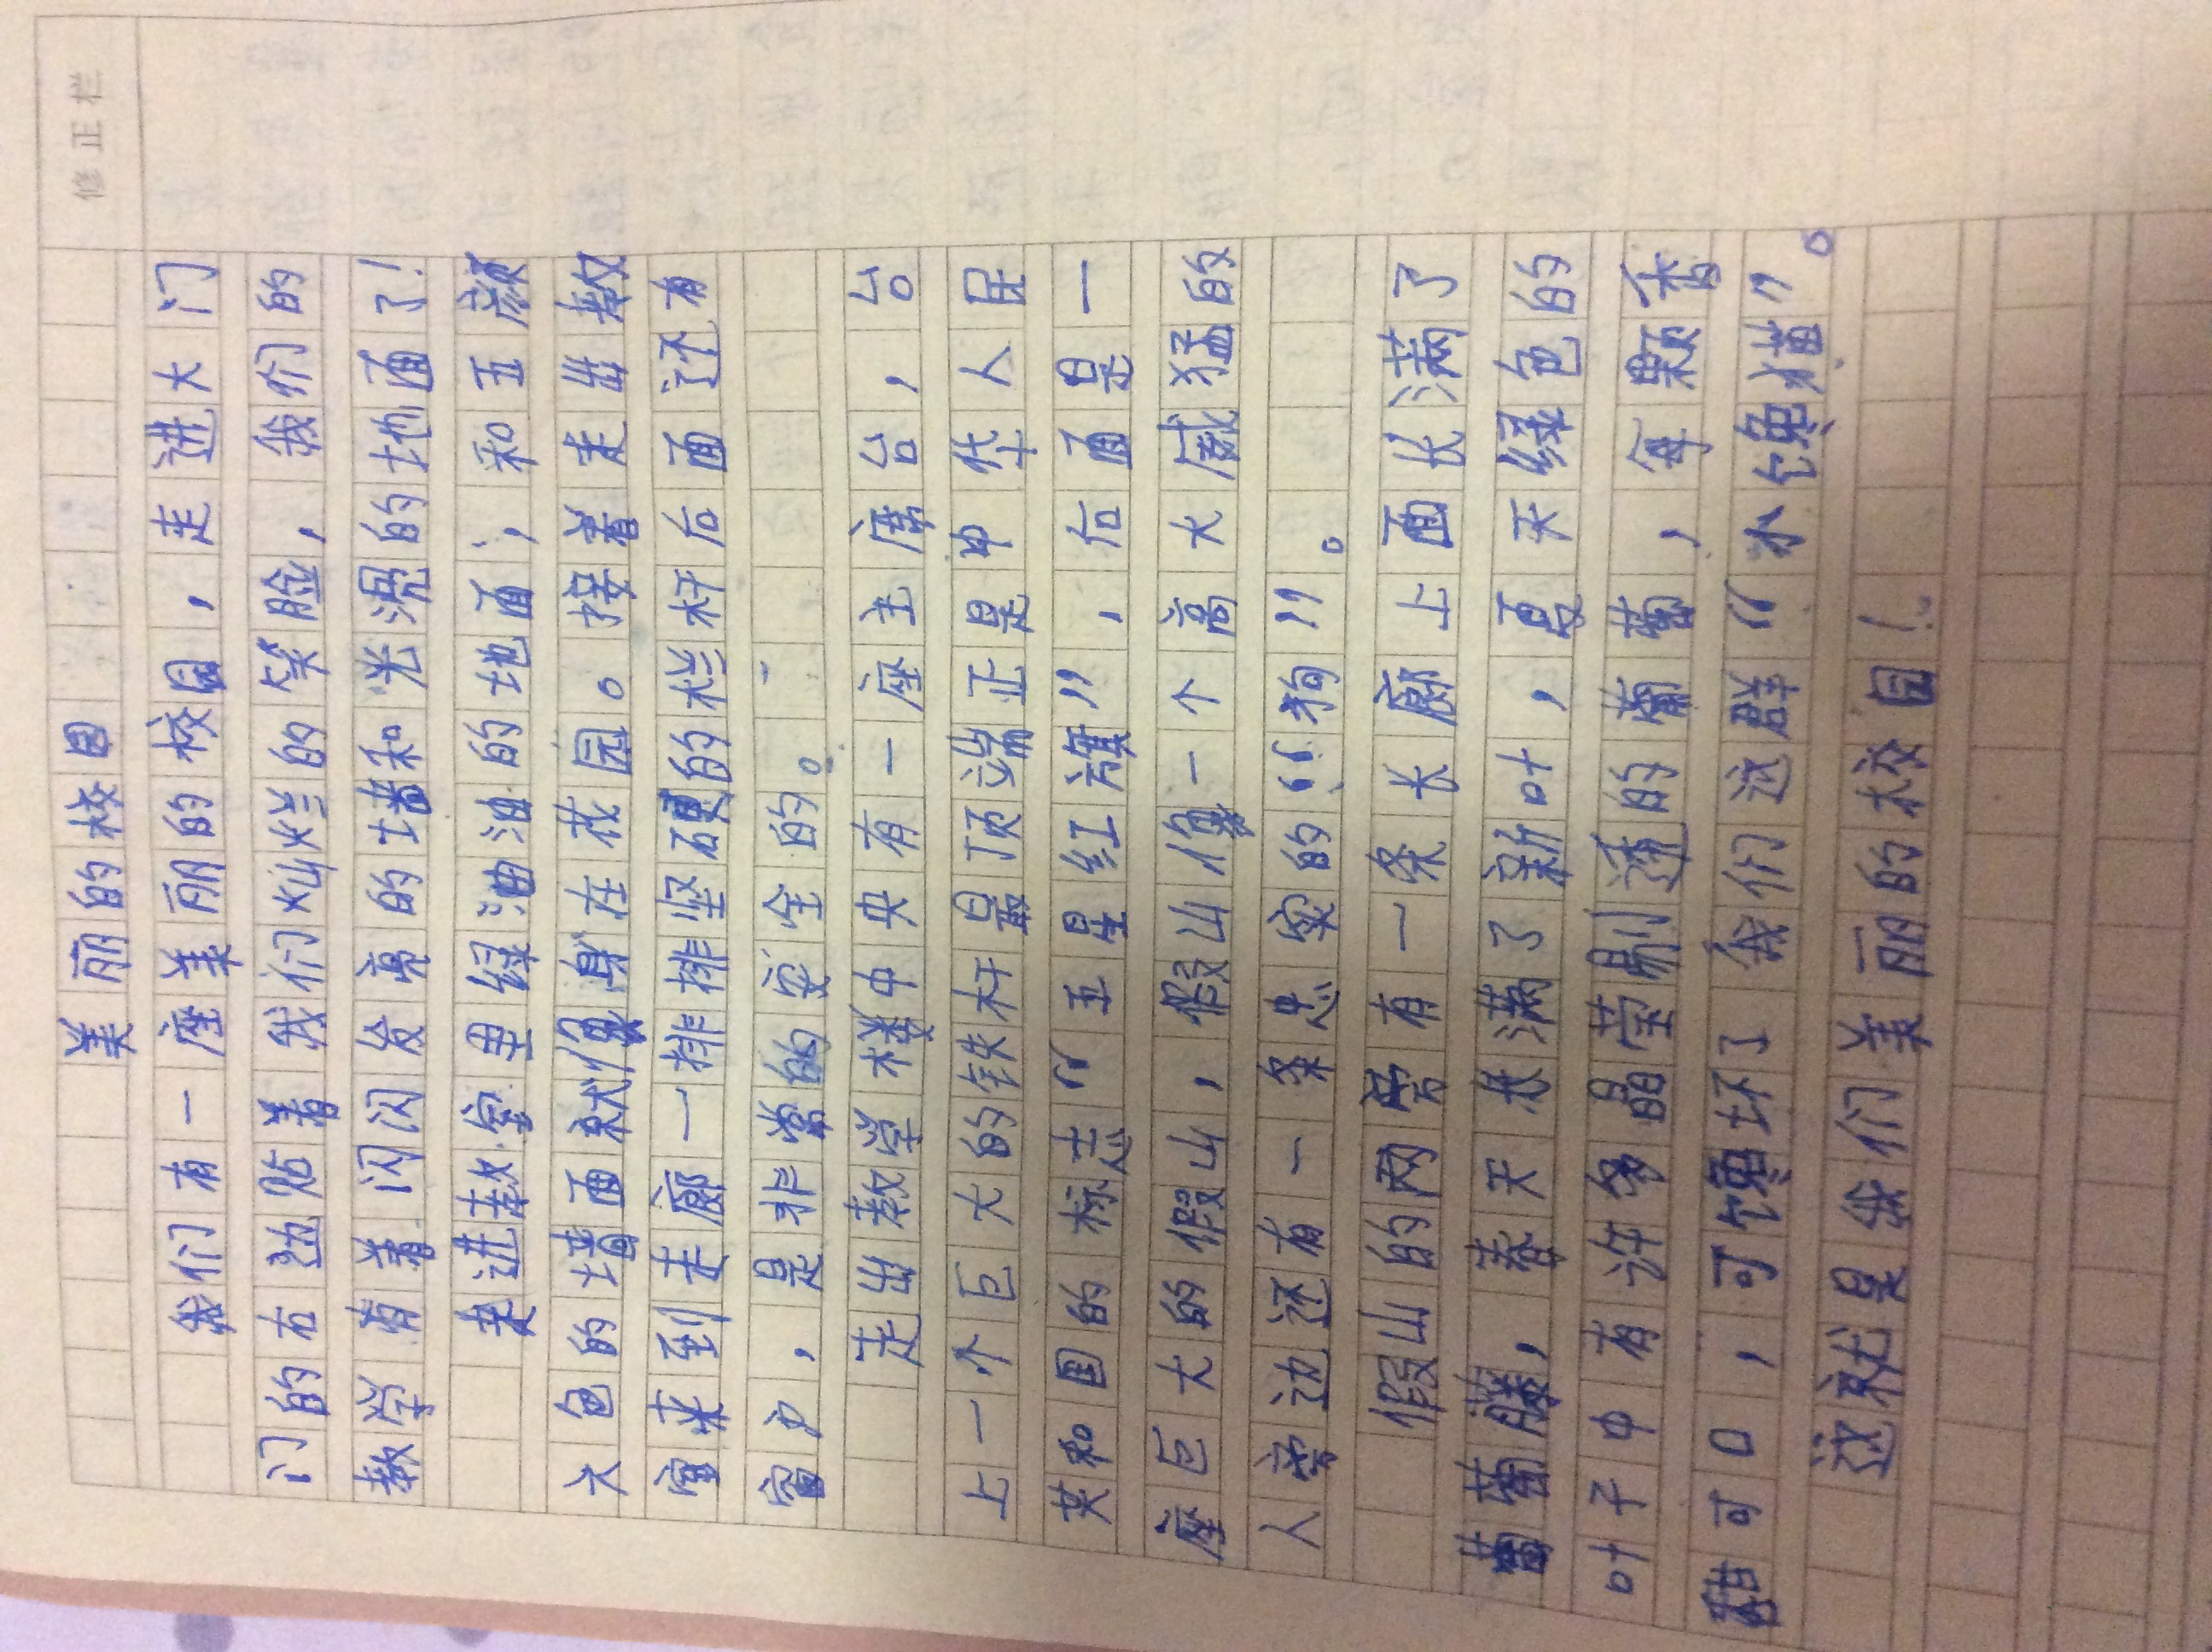 修正栏
美丽的校园
我们有一座美丽的校园，走进大门
门的右边贴着我们灿烂的笑脸，我们的
教学有着闪闪发亮的墙和光滑的地面了！
来进教室里绿油油的地面，和五颜
六色的墙面就像身在花园。接着走出教
室来到走廊一排排坚硬的栏杆后面还有
窗户，是非常的安全的。
走出教学楼中央有一座主席台台，台
上一个巨大的铁杆最顶端正是中华人民
共和国的标志“五星红旗”，右面是一
座巨大的假山，假山像一个高大威猛的
人旁边还有一条忠实的“狗”。
假山的两旁有一条长廊上面长满了
葡萄藤，春天长满了新叶，夏天绿色的
叶子中有许多晶莹剔透的葡萄，每颗香
甜可口，可馋坏了我们这群“小馋猫”。
这就是我们美丽的校园！